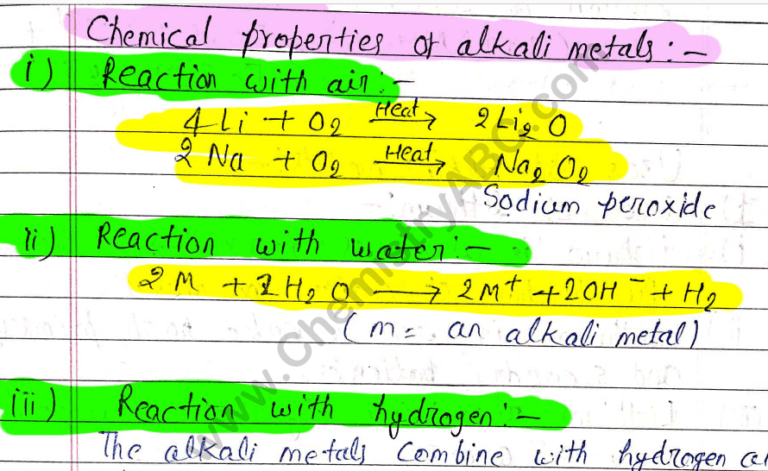 Chemical properties of alkali metals :-
i) Reaction with air :-
4Li + O2 Heat→ 2Li2O
2Na + O2 Heat→ Na2O2
Sodium peroxide
ii) Reaction with water :-
2M + 2H2O → 2M+ + 2OH- + H2
(m = an alkali metal)
iii) Reaction with hydrogen :-
The alkali metals combine with hydrogen
www.ChemistryABC.com